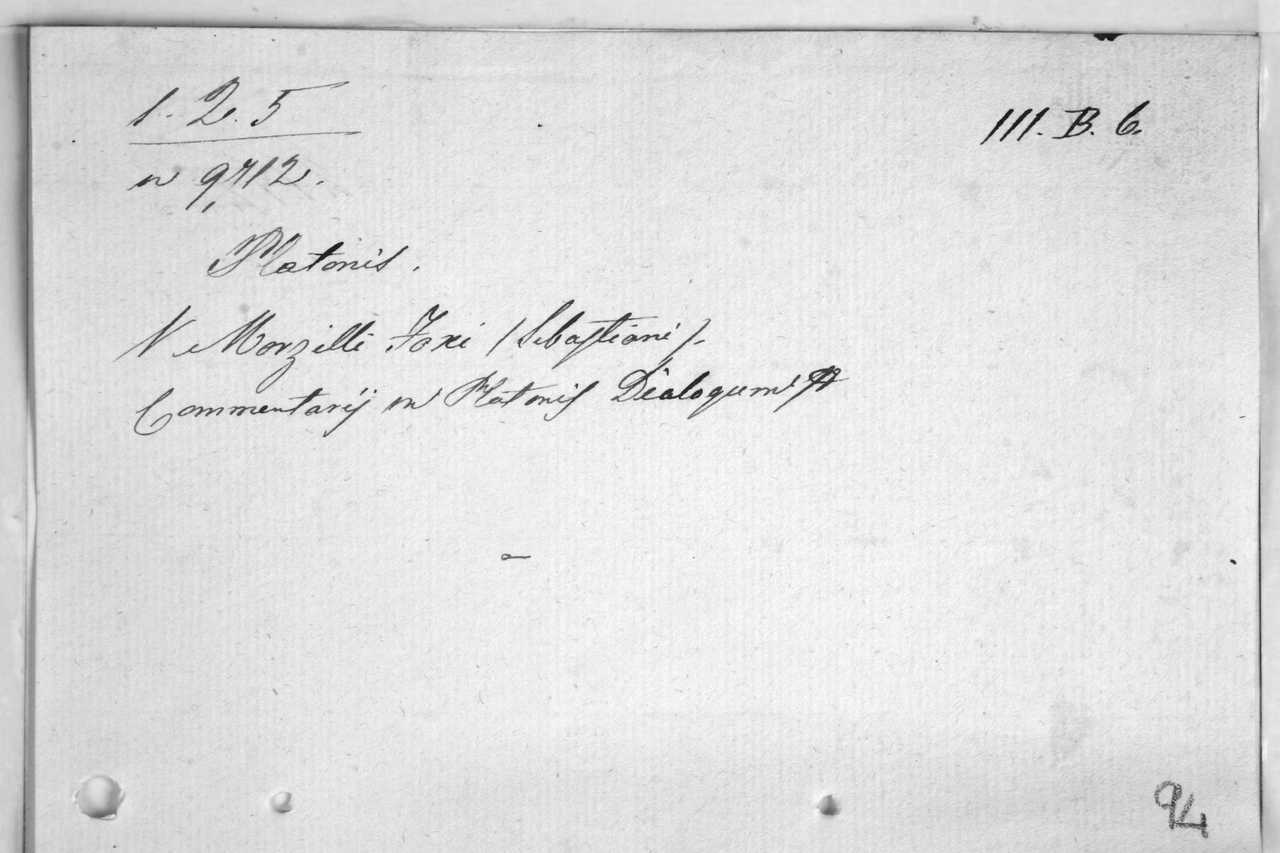 1. 2. 5
III. B. 6.
n 9712.
Platonis.
V. Morzilli Foxi (Sebastiani).
Commentarij in Platonis Dialogum